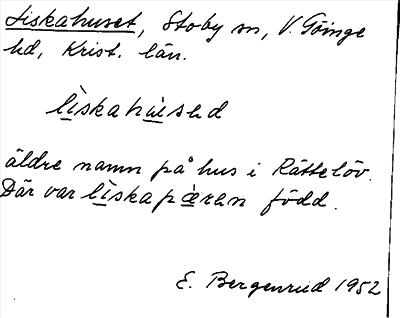 Liskahuset, Stoby sn, V. Göinge
hd, Krist. län.
lìskahùsəd
äldre namn på hus i Rättelöv.
Där var lìskapæ̀rən född.
E. Bergenrud 1952